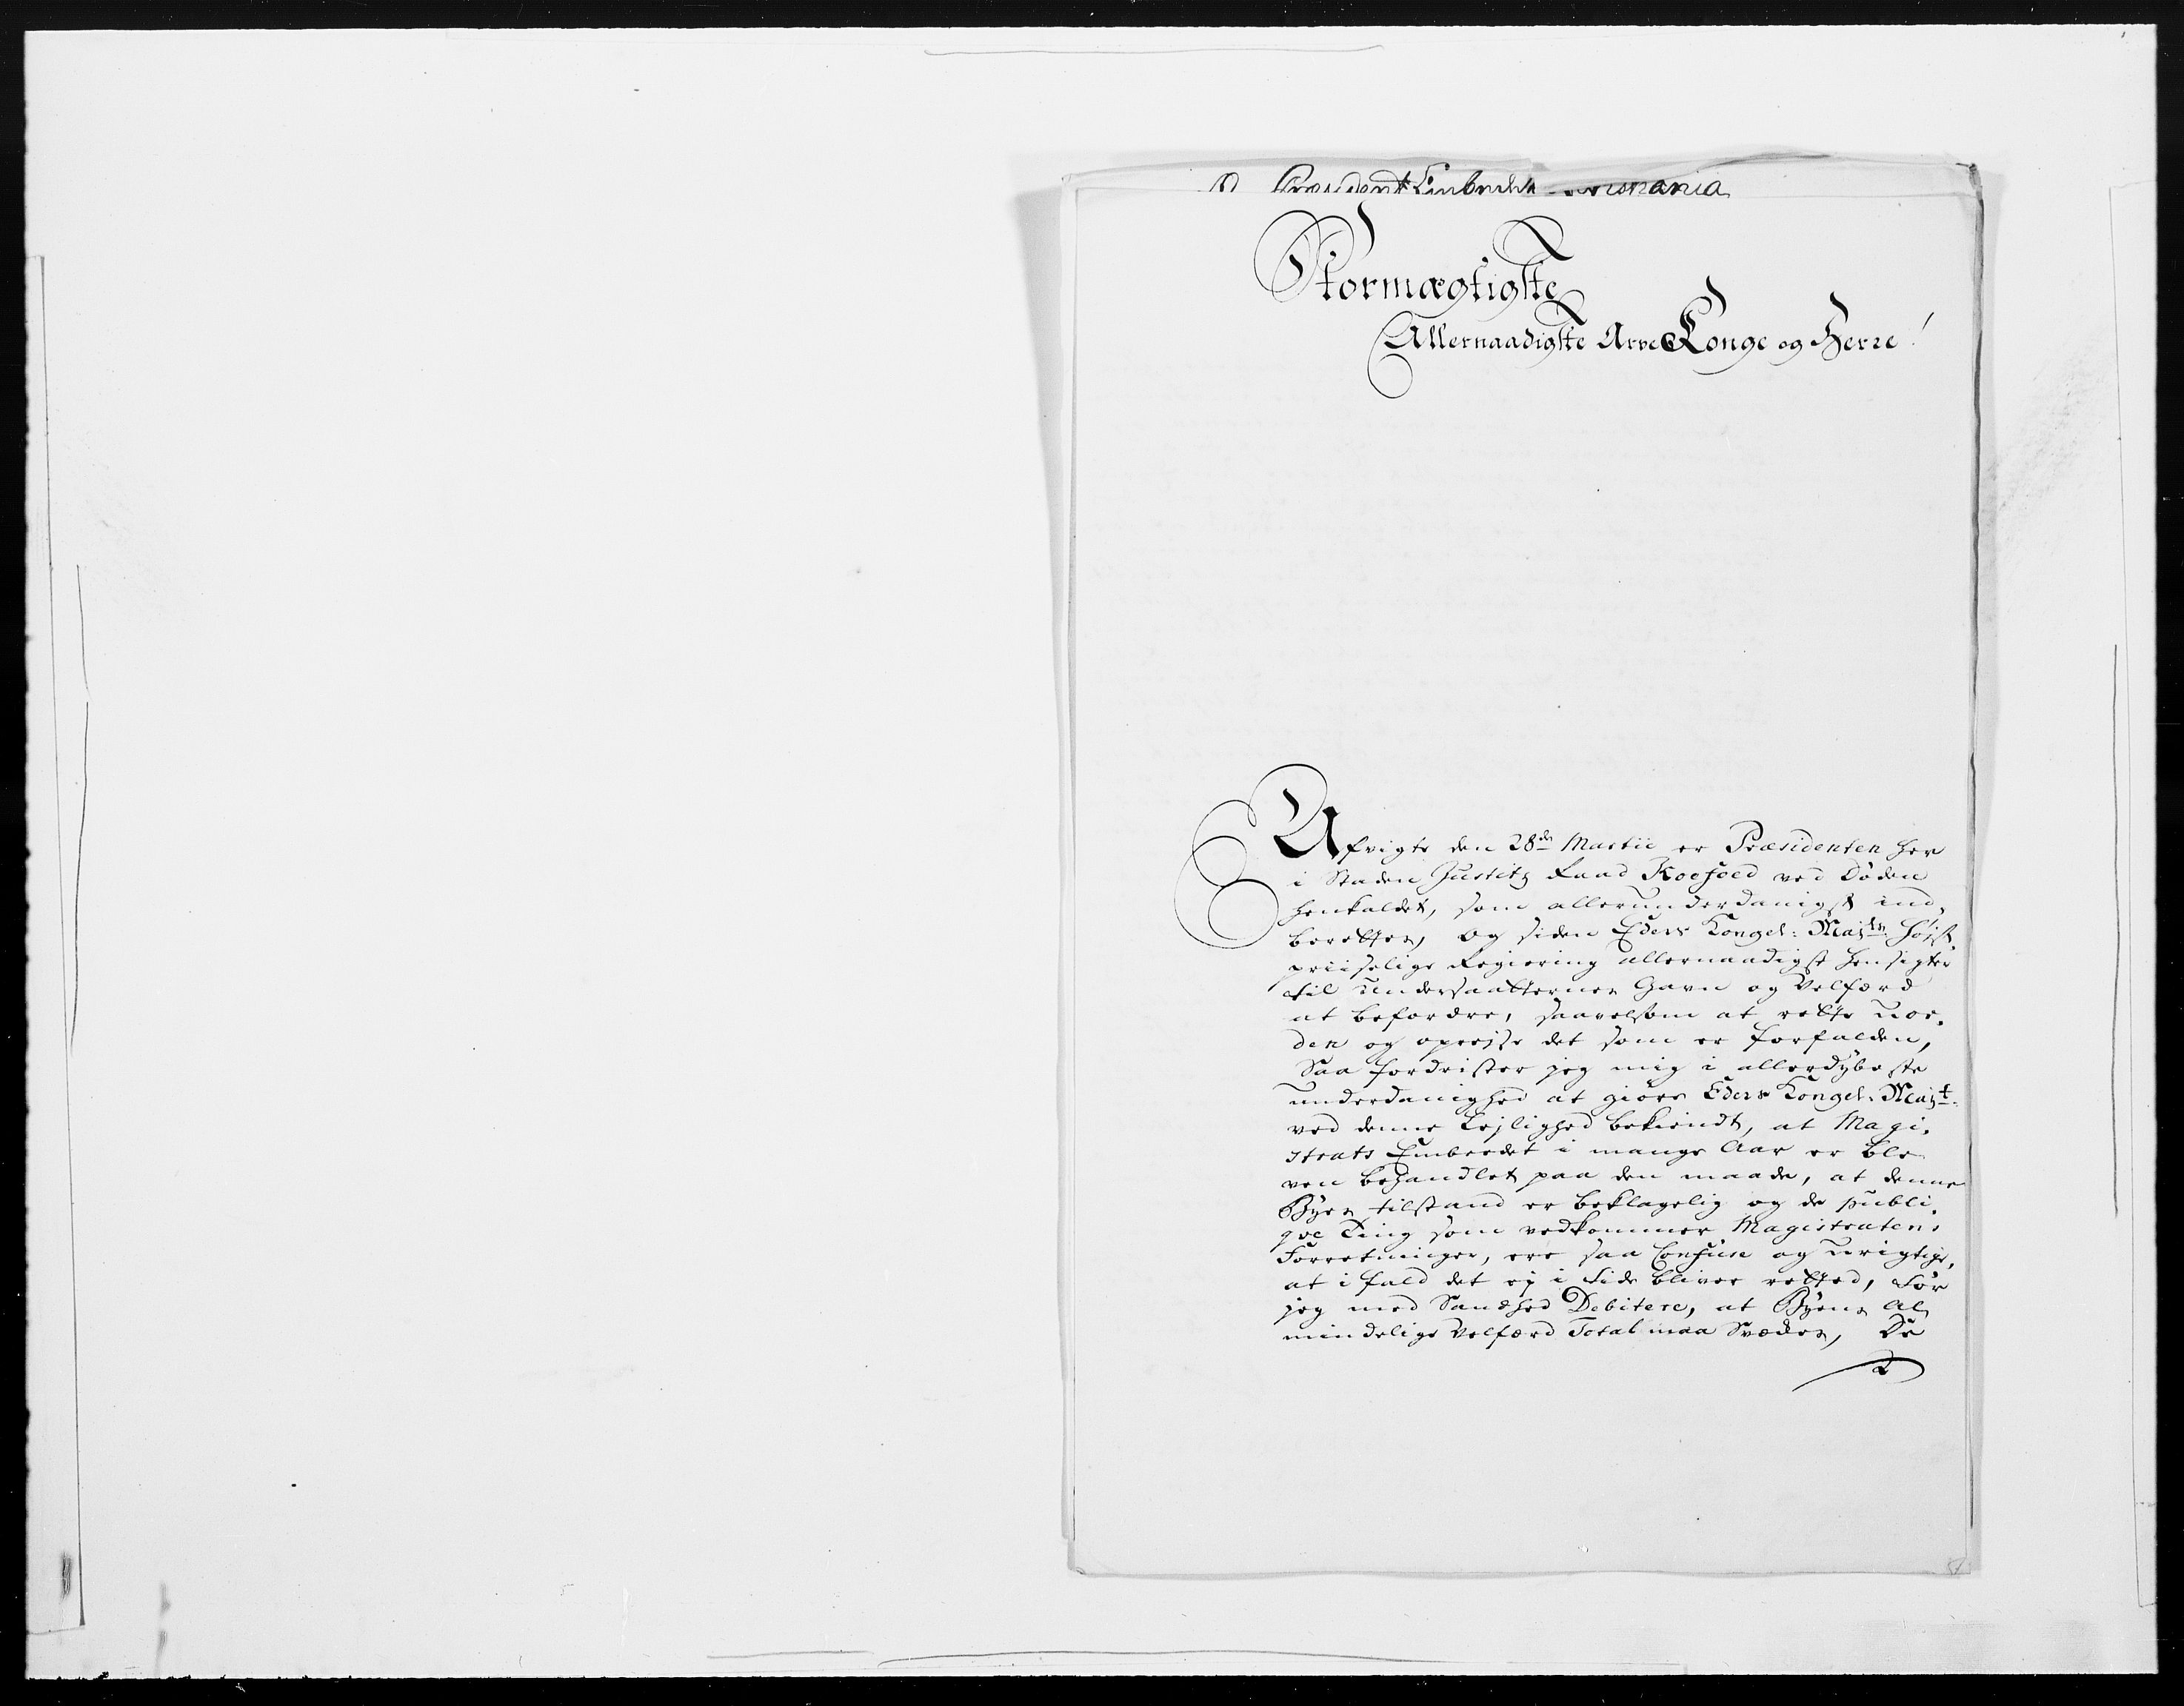 Præsident Embedet
Stormægtigste
Allernaadigste Arve Konge og Herre!
Afvigte den 28de Martii er Præsidenten her
i Staden Justitz Raad Koefoed ved Döden
henkaldet, som allerunderdanigst ind,
berettes, og siden Eders Kongel: Majts: höjst,
priiselige Regiering allernaadigst hensigter
til Undersaatternes Gavn og Velfærd
at befordre, saavelsom at rette uor,
den og oprejse det som er forfalden,
Saa fordrister jeg mig i allerdybeste
underdanighed at giöre Eders Kongel. Majt:
ved denne Lejlighed bekiendt, at Magi,
strats Embedet i mange Aar er ble
ven behandlet paa den maade, at denne
Byes tilstand er beklagelig og de publi,
qve Ting som vedkommer Magistratens
Forretninger, ere saa Confuse og urigtige,
at i fald det ej i tide bliver retted, tör
jeg med Sandhed Debitere, at Byens Al,
mindelige Velfærd Total maa Svækkes, De